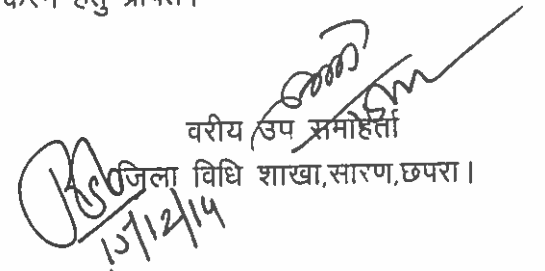 करने हेतु प्रेषित।
वरीय उप समाहर्ता
जिला विधि शाखा,सारण,छपरा।
15/12/14